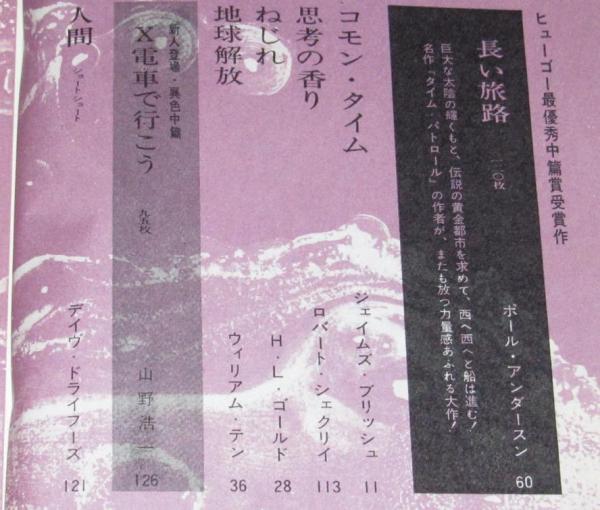 ヒューゴー最優秀中篇賞受賞作
長い旅路 一二〇枚 ポール・アンダースン 60
巨大な太陰の輝くもと、伝説の黄金都市を求めて、西へ西へと船は進む!
名作「タイム・パトロール」の作者が、またも放つ力量感あふれる大作!
コモン・タイム ジェイムズ・ブリッシュ 11
思考の香り ロバート・シェクリイ 113
ねじれ H・L・ゴールド 28
地球解放 ウィリアム・テン 36
新人登場・異色中篇
X電車で行こう 九五枚 山野浩一 126
人間 ショートショート デイヴ・ドライフーズ 121